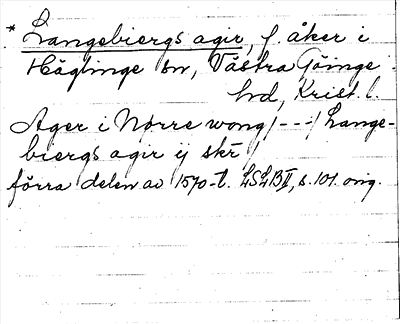 * Langebiergs agir, f. åker i
Häglinge sn, Västra Göinge
hd, Krist. l.
Ager i Nörre wong /---/ Lange-
biergs agir ij skr̄ /
förra delen av 1570-t. LSLB II, s. 101. orig.